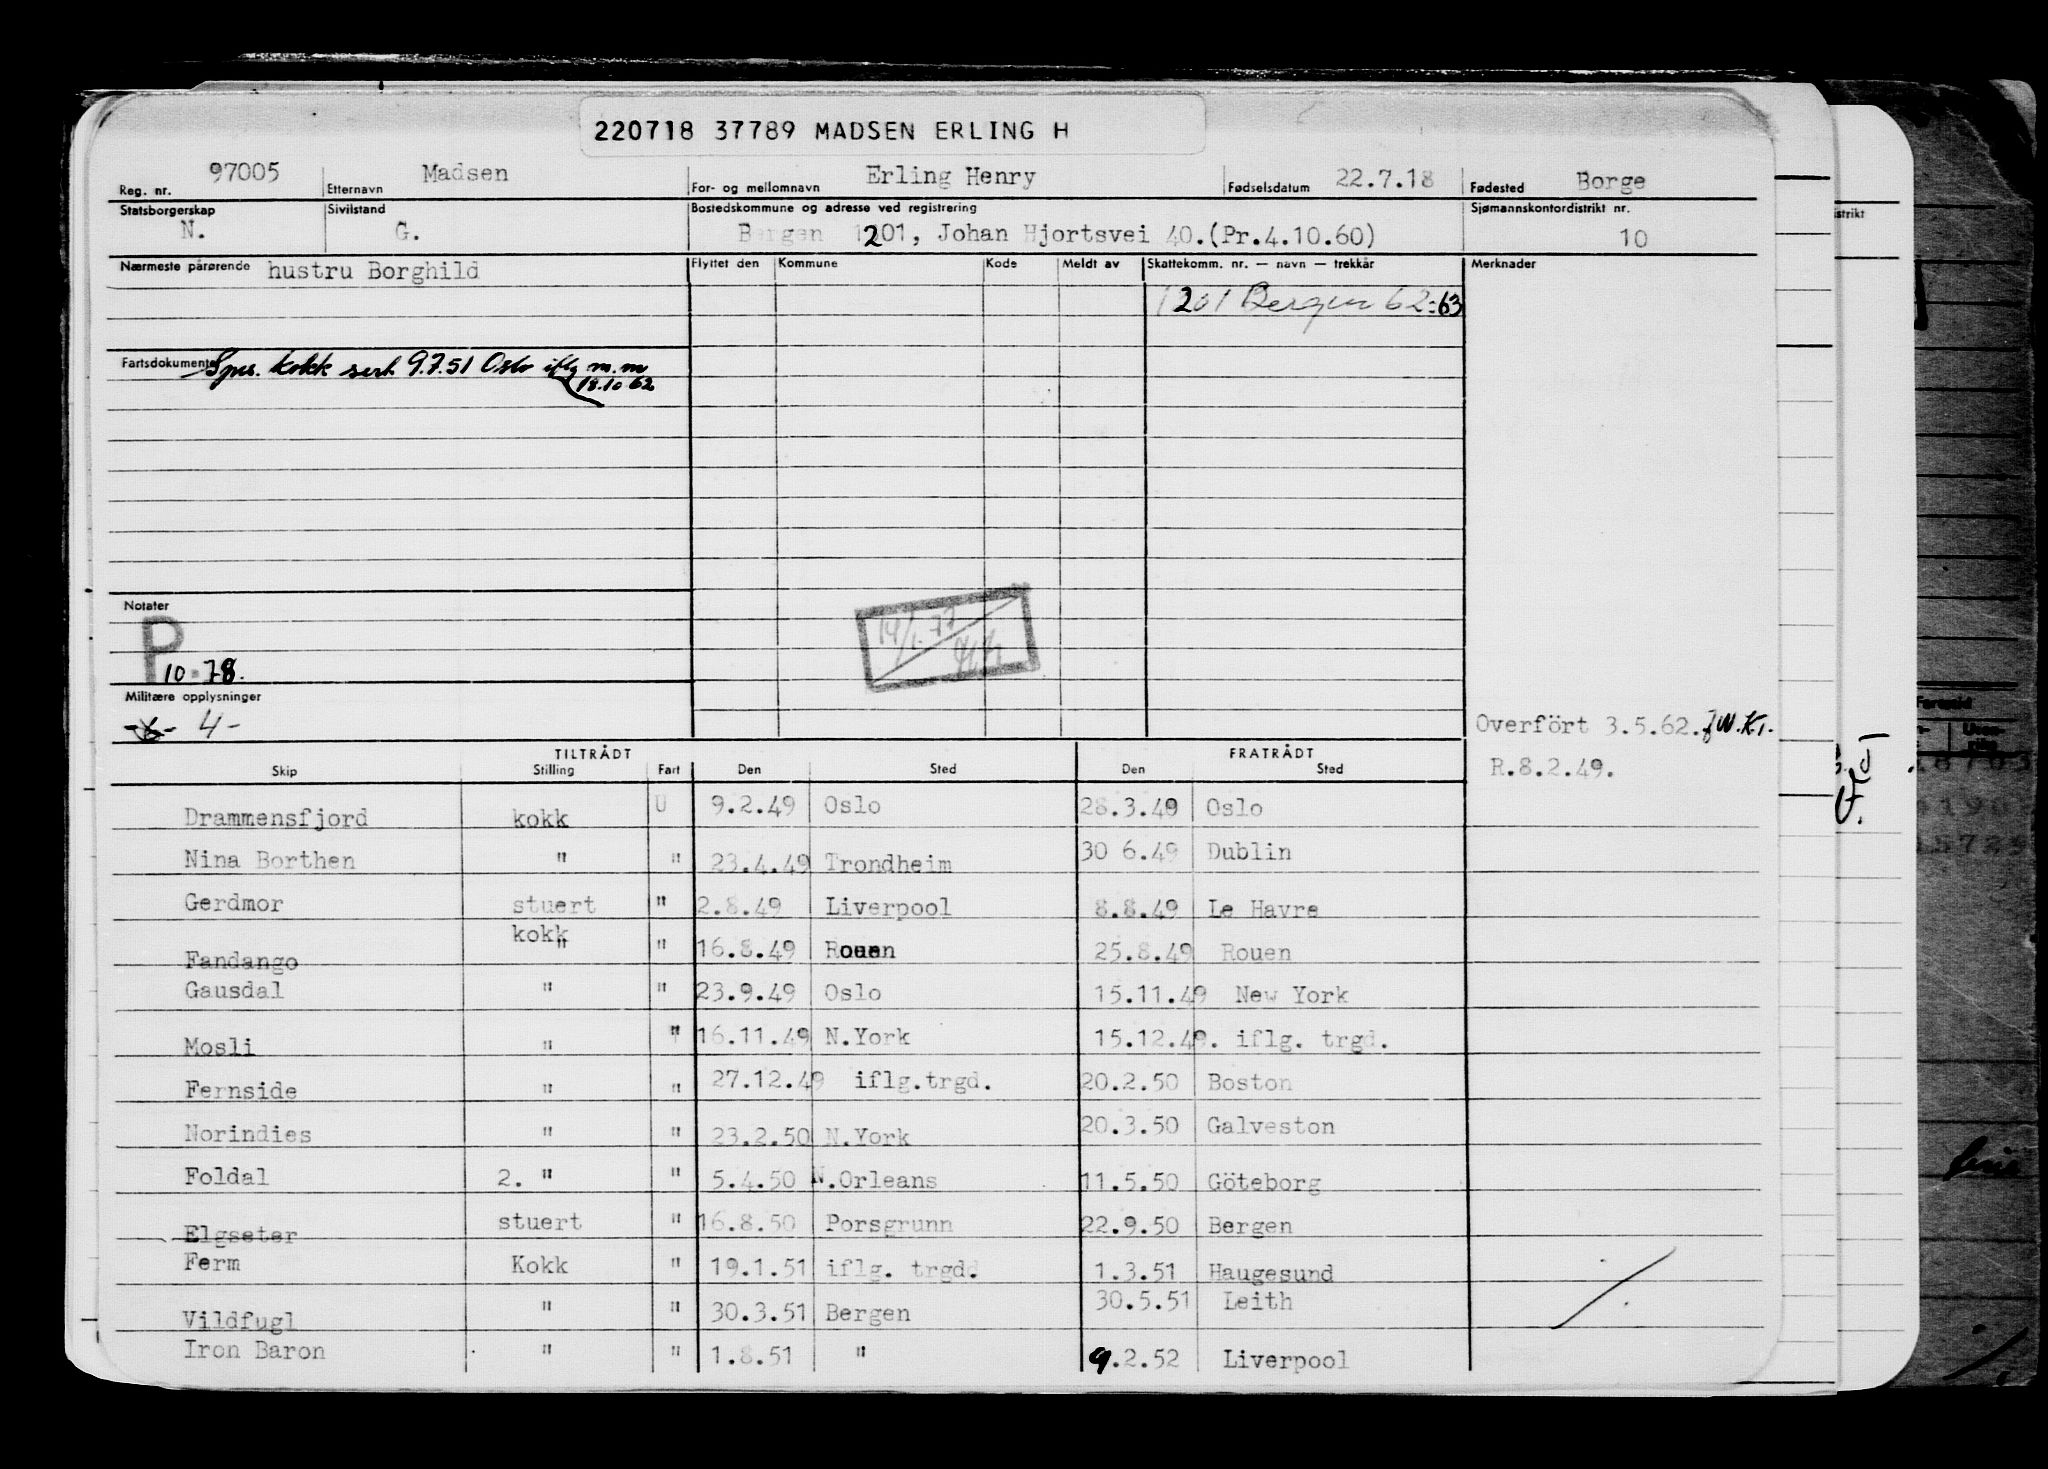 220718 37789 MADSEN ERLING H
Reg. nr. 97005 Etternavn Madsen For- og mellomnavn Erling Henry Fødselsdatum 22.7.18 Fødested Borge
Statsborgerskap Sivilstand Bostedskommune og adresse ved registrering Sjømannskontordistrikt nr.
N. G. Bergen 1201, Johan Hjortsvei 40.(Pr.4.10.60) 10
Nærmeste pårørende hustru Borghild Flyttet den Kommune Kode Meldt av Skattekomm. nr. — navn — trekkår Merknader
1201 Bergen 62-63
Fartsdokumenter kokk sert 9.7.51 Oslo iflg m.m
18.10.62
Notater
P
10.78.
14/1.77
Militære opplysninger
4-
Overfört 3.5.62. W.K.
TILTRÅDT FRATRÅDT
Skip Stilling Fart Den Sted Den Sted R.8.2.49.
Drammensfjord kokk U 9.2.49 Oslo 28.3.49 Oslo
Nina Borthen " " 23.4.49 Trondheim 30 6.49 Dublin
Gerdmor stuert " 2.8.49 Liverpool 8.8.49 Le Havre
Fandango kokk " " 16.8.49 Rouen 25.8.49 Rouen
Gausdal " " 23.9.49 Oslo 15.11.49 New York
Mosli " " 16.11.49 N.York 15.12.49. iflg. trgd.
Fernside " " 27.12.49 iflg.trgd. 20.2.50 Boston
Norindies " " 23.2.50 N.York 20.3.50 Galveston
Foldal 2. " " 5.4.50 N.Orleans 11.5.50 Göteborg
Elgseter stuert " 16.8.50 Porsgrunn 22.9.50 Bergen
Ferm Kokk " 19.1.51 iflg. trgdd. 1.3.51 Haugesund
Vildfugl " " 30.3.51 Bergen 30.5.51 Leith
Iron Baron " " 1.8.51 " 9.2.52 Liverpool